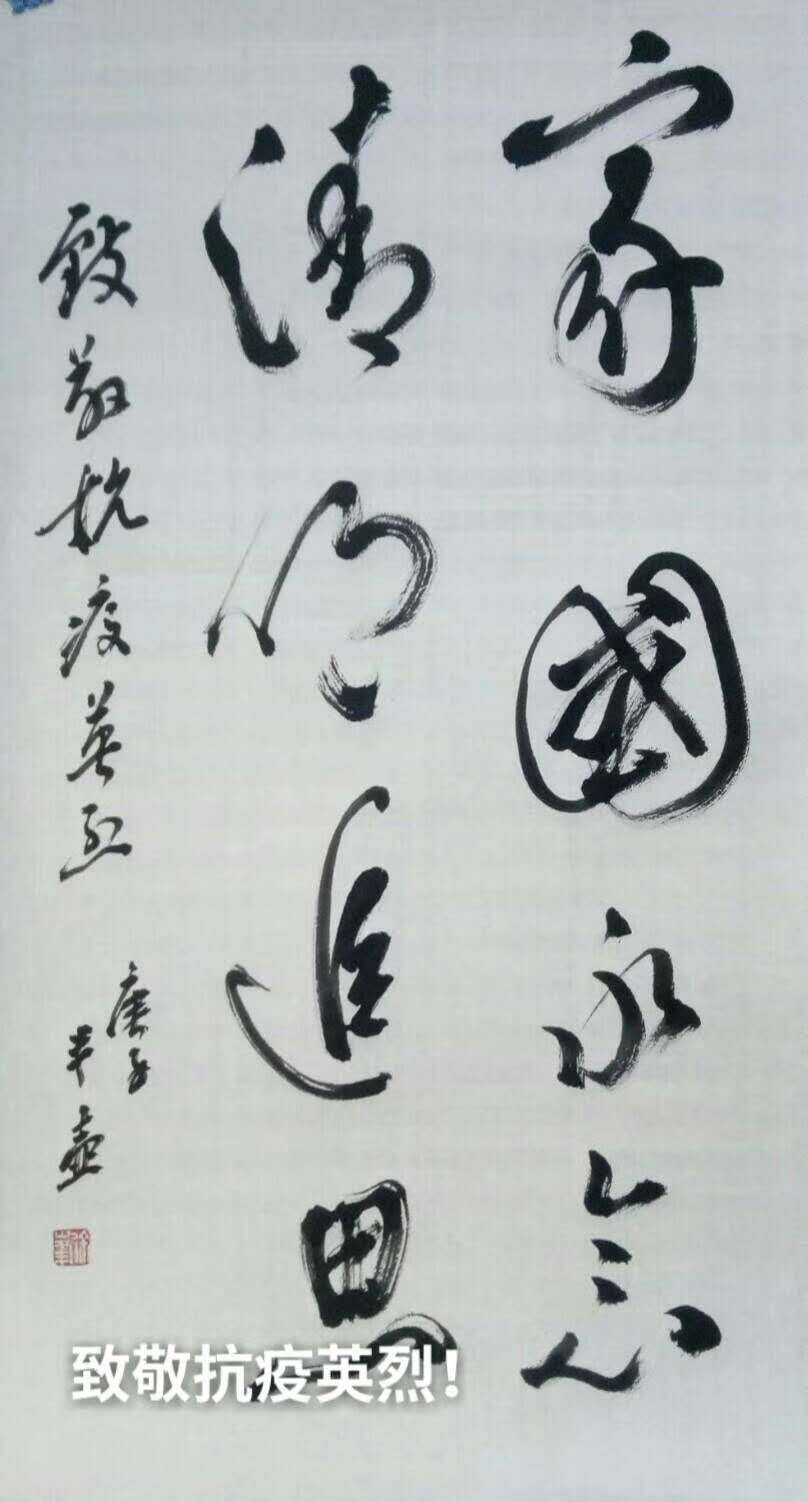 家國永念
清明追思
致敬抗疫英烈
庚子
半壺
致敬抗疫英烈！